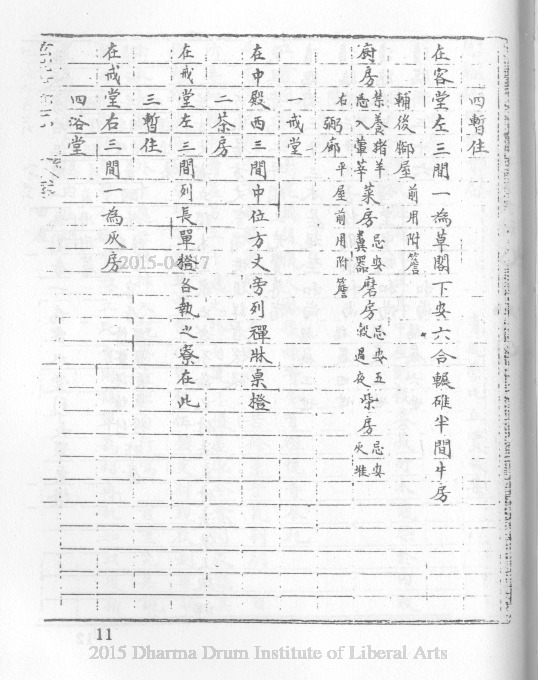 四暫住
在客堂左三間一為草閣下安六合輾碓半間牛房
輔後腳屋前用附簷
廚房禁養猪羊忌入葷莘菜房忌安糞器磨房忌安五穀過夜柴房忌安灰堆
右弼廊平屋前用附簷
一戒堂
在中殿西三間中位方丈旁列禪牀桌橙
二茶房
在戒堂左三間列長單橙各執之寮在此
三暫住
在戒堂右三間一為灰房
四浴堂
11
2015 Dharma Drum Institute of Liberal Arts